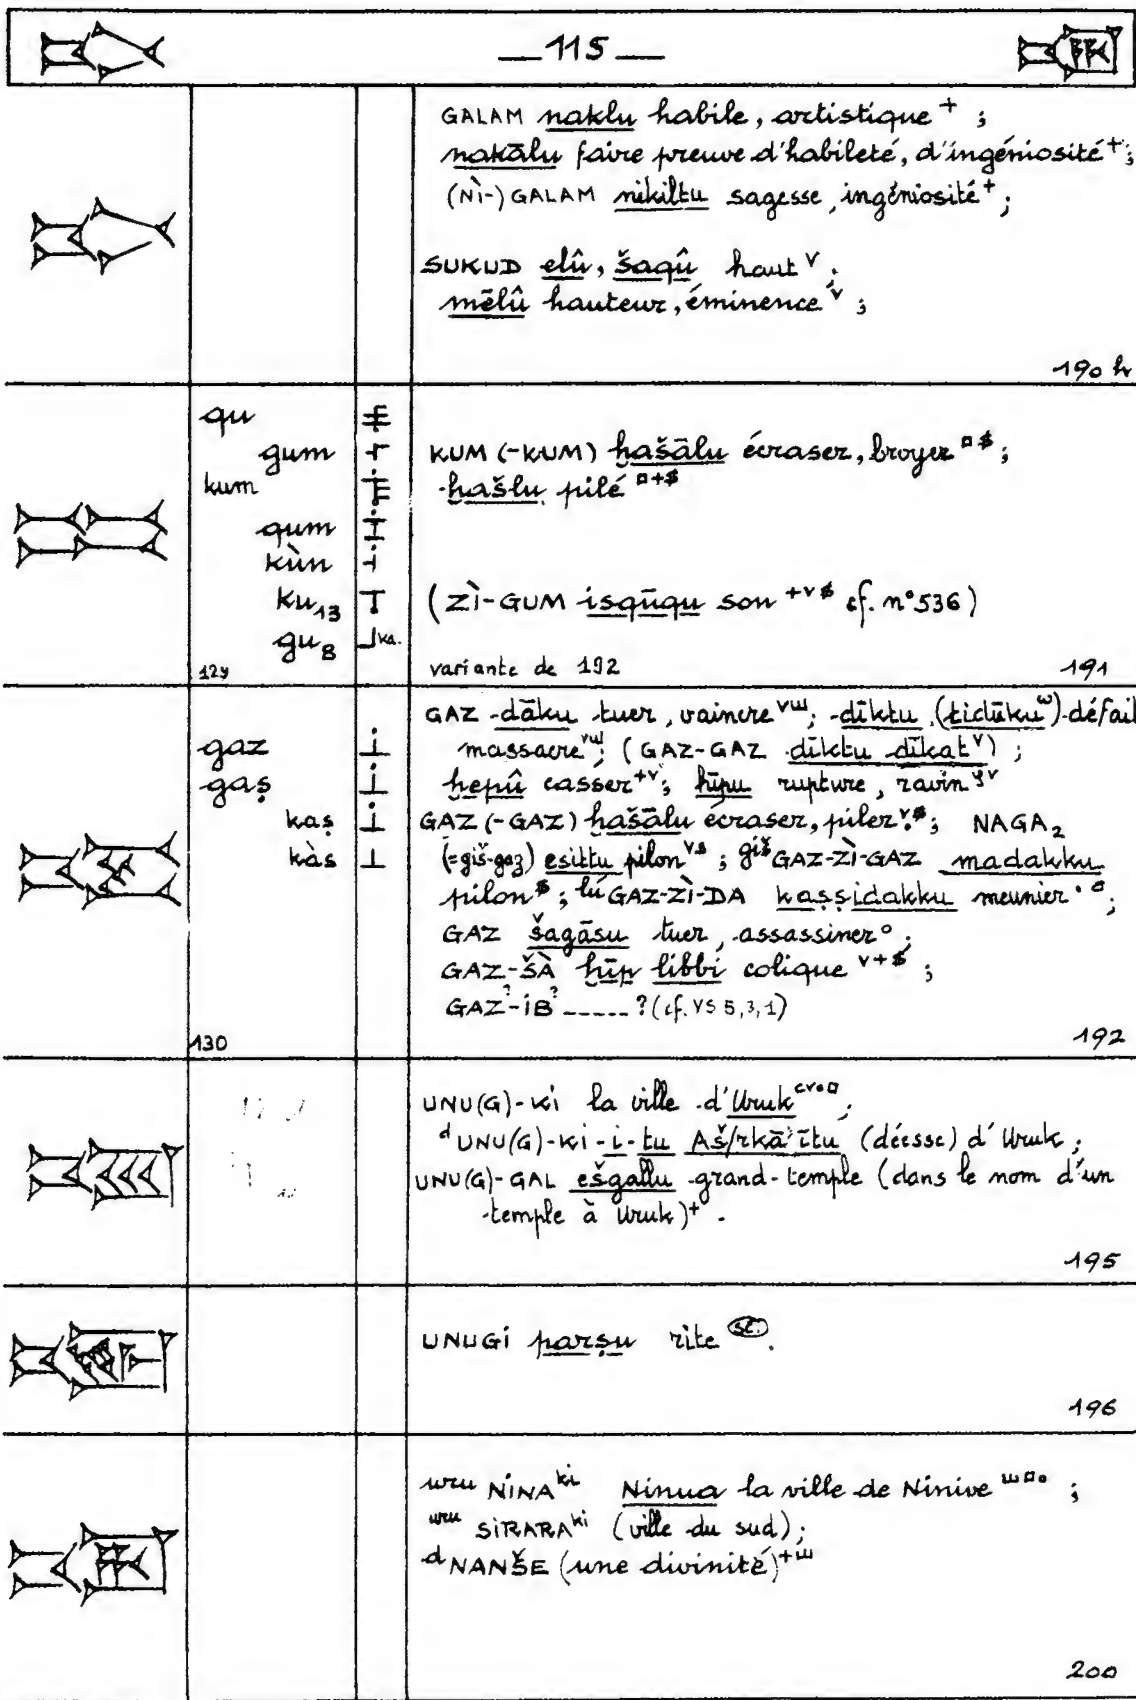 — 115 —
GALAM naklu habile, artistique + ;
nakālu faire preuve d'habileté, d'ingéniosité + ;
(NÌ-) GALAM nikiltu sagesse, ingéniosité + ;
SUKUD elû, šaqû haut v ;
mēlû hauteur, éminence v ;
190 h
qu
gum
kum
qum
kùn
ku₁₃
gu₈ ka.
129
KUM (-KUM) ḫašālu écraser, broyer ¤$ ;
ḫašlu pilé ¤+$
(ZÌ-GUM isqūqu son +v$ cf. n° 536)
variante de 192
191
gaz
gaṣ
kaṣ
kàs
130
GAZ dāku tuer, vaincre vш ; dīktu (tidūku ω) défai
massacre vш ; (GAZ-GAZ dīktu dīkat v) ;
ḫepû casser +v ; ḫīpu rupture, ravin v
GAZ (-GAZ) ḫašālu écraser, piler v.$ ; NAGA₂
(= giš-gaz) esittu pilon v$ ; giš GAZ-ZÌ-GAZ madakku
pilon $ ; lú GAZ-ZÌ-DA kaṣṣidakku meunier • ¤ ;
GAZ šagāsu tuer, assassiner ° ;
GAZ-ŠÀ ḫīp libbi colique v+$ ;
GAZ?-iB? ----- ? (cf. VS 5,3,1)
192
UNU(G)-Ki la ville d'Uruk cv•¤ ;
d UNU(G)-Ki-i-tu Aš/rkā'ītu (déesse) d'Uruk ;
UNU(G)-GAL ešgallu grand-temple (dans le nom d'un
temple à Uruk) + .
195
UNUGi parṣu rite sc. .
196
uru NINA ki Ninua la ville de Ninive ш¤• ;
uru SIRARA ki (ville du sud) ;
d NANŠE (une divinité) +ш
200